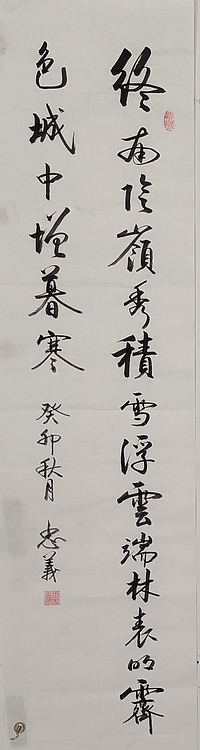 终南阴嶺秀積雪浮雲端林表明霽
色城中增暮寒
癸卯秋月 忠義